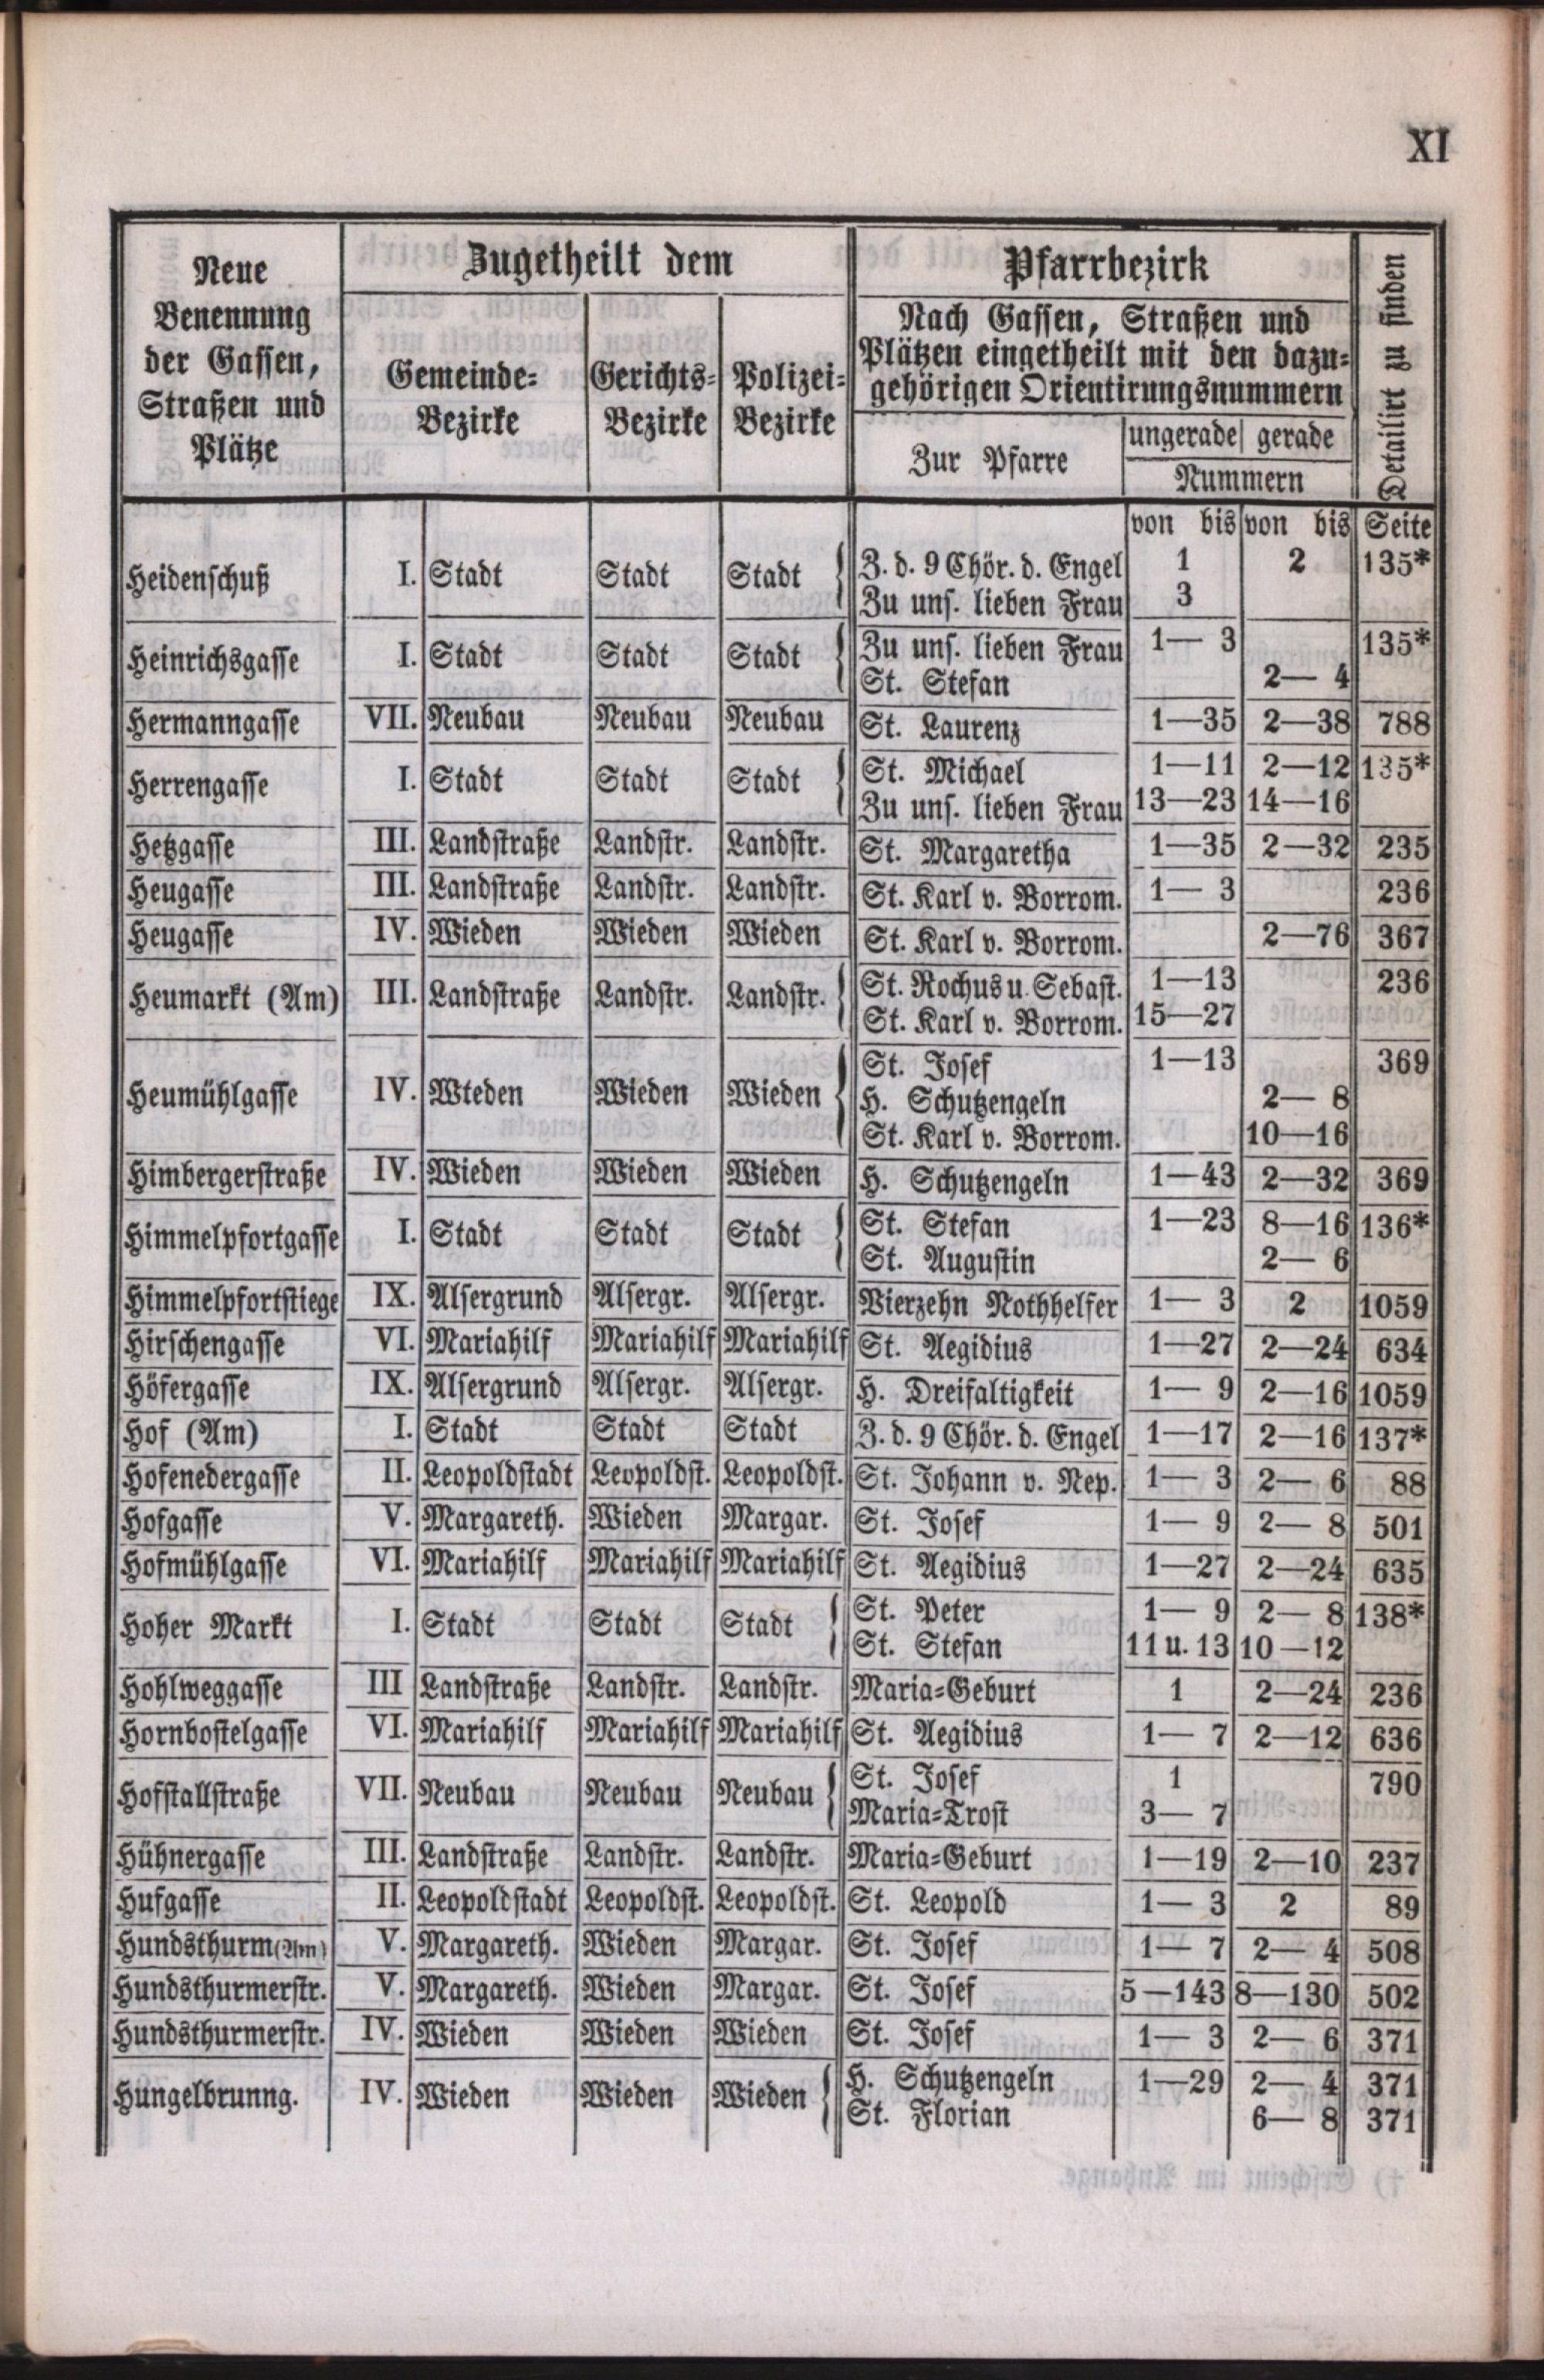 XI
Neue Benennung der Gassen, Straßen und Plätze
Zugetheilt dem
Gemeinde-Bezirke
Gerichts-Bezirke
Polizei-Bezirke
Pfarrbezirk
Nach Gassen, Straßen und
Plätzen eingetheilt mit den dazu-
gehörigen Orientirungsnummern
Zur Pfarre
ungerade gerade
Nummern
Detailirt zu finden
von bis von bis Seite
Heidenschuß I. Stadt Stadt Stadt Z. d. 9 Chör. d. Engel 1 2 135*
Zu uns. lieben Frau 3
Heinrichsgasse I. Stadt Stadt Stadt Zu uns. lieben Frau 1— 3 135*
St. Stefan 2— 4
Hermanngasse VII. Neubau Neubau Neubau St. Laurenz 1—35 2—38 788
Herrengasse I. Stadt Stadt Stadt St. Michael 1—11 2—12 135*
Zu uns. lieben Frau 13—23 14—16
Hetzgasse III. Landstraße Landstr. Landstr. St. Margaretha 1—35 2—32 235
Heugasse III. Landstraße Landstr. Landstr. St. Karl v. Borrom. 1— 3 236
Heugasse IV. Wieden Wieden Wieden St. Karl v. Borrom. 2—76 367
Heumarkt (Am) III. Landstraße Landstr. Landstr. St. Rochus u. Sebast. 1—13 236
St. Karl v. Borrom. 15—27
Heumühlgasse IV. Wteden Wieden Wieden St. Josef 1—13 369
H. Schutzengeln 2— 8
St. Karl v. Borrom. 10—16
Himbergerstraße IV. Wieden Wieden Wieden H. Schutzengeln 1—43 2—32 369
Himmelpfortgasse I. Stadt Stadt Stadt St. Stefan 1—23 8—16 136*
St. Augustin 2— 6
Himmelpfortstiege IX. Alsergrund Alsergr. Alsergr. Vierzehn Nothhelfer 1— 3 2 1059
Hirschengasse VI. Mariahilf Mariahilf Mariahilf St. Aegidius 1—27 2—24 634
Höfergasse IX. Alsergrund Alsergr. Alsergr. H. Dreifaltigkeit 1— 9 2—16 1059
Hof (Am) I. Stadt Stadt Stadt Z. d. 9 Chör. d. Engel 1—17 2—16 137*
Hofenedergasse II. Leopoldstadt Leopoldst. Leopoldst. St. Johann v. Nep. 1— 3 2— 6 88
Hofgasse V. Margareth. Wieden Margar. St. Josef 1— 9 2— 8 501
Hofmühlgasse VI. Mariahilf Mariahilf Mariahilf St. Aegidius 1—27 2—24 635
Hoher Markt I. Stadt Stadt Stadt St. Peter 1— 9 2— 8 138*
St. Stefan 11 u. 13 10—12
Hohlweggasse III Landstraße Landstr. Landstr. Maria-Geburt 1 2—24 236
Hornbostelgasse VI. Mariahilf Mariahilf Mariahilf St. Aegidius 1— 7 2—12 636
Hofstallstraße VII. Neubau Neubau Neubau St. Josef 1 790
Maria-Trost 3— 7
Hühnergasse III. Landstraße Landstr. Landstr. Maria-Geburt 1—19 2—10 237
Hufgasse II. Leopoldstadt Leopoldst. Leopoldst. St. Leopold 1— 3 2 89
Hundsthurm (Am) V. Margareth. Wieden Margar. St. Josef 1— 7 2— 4 508
Hundsthurmerstr. V. Margareth. Wieden Margar. St. Josef 5—143 8—130 502
Hundsthurmerstr. IV. Wieden Wieden Wieden St. Josef 1— 3 2— 6 371
Hungelbrunng. IV. Wieden Wieden Wieden H. Schutzengeln 1—29 2— 4 371
St. Florian 6— 8 371